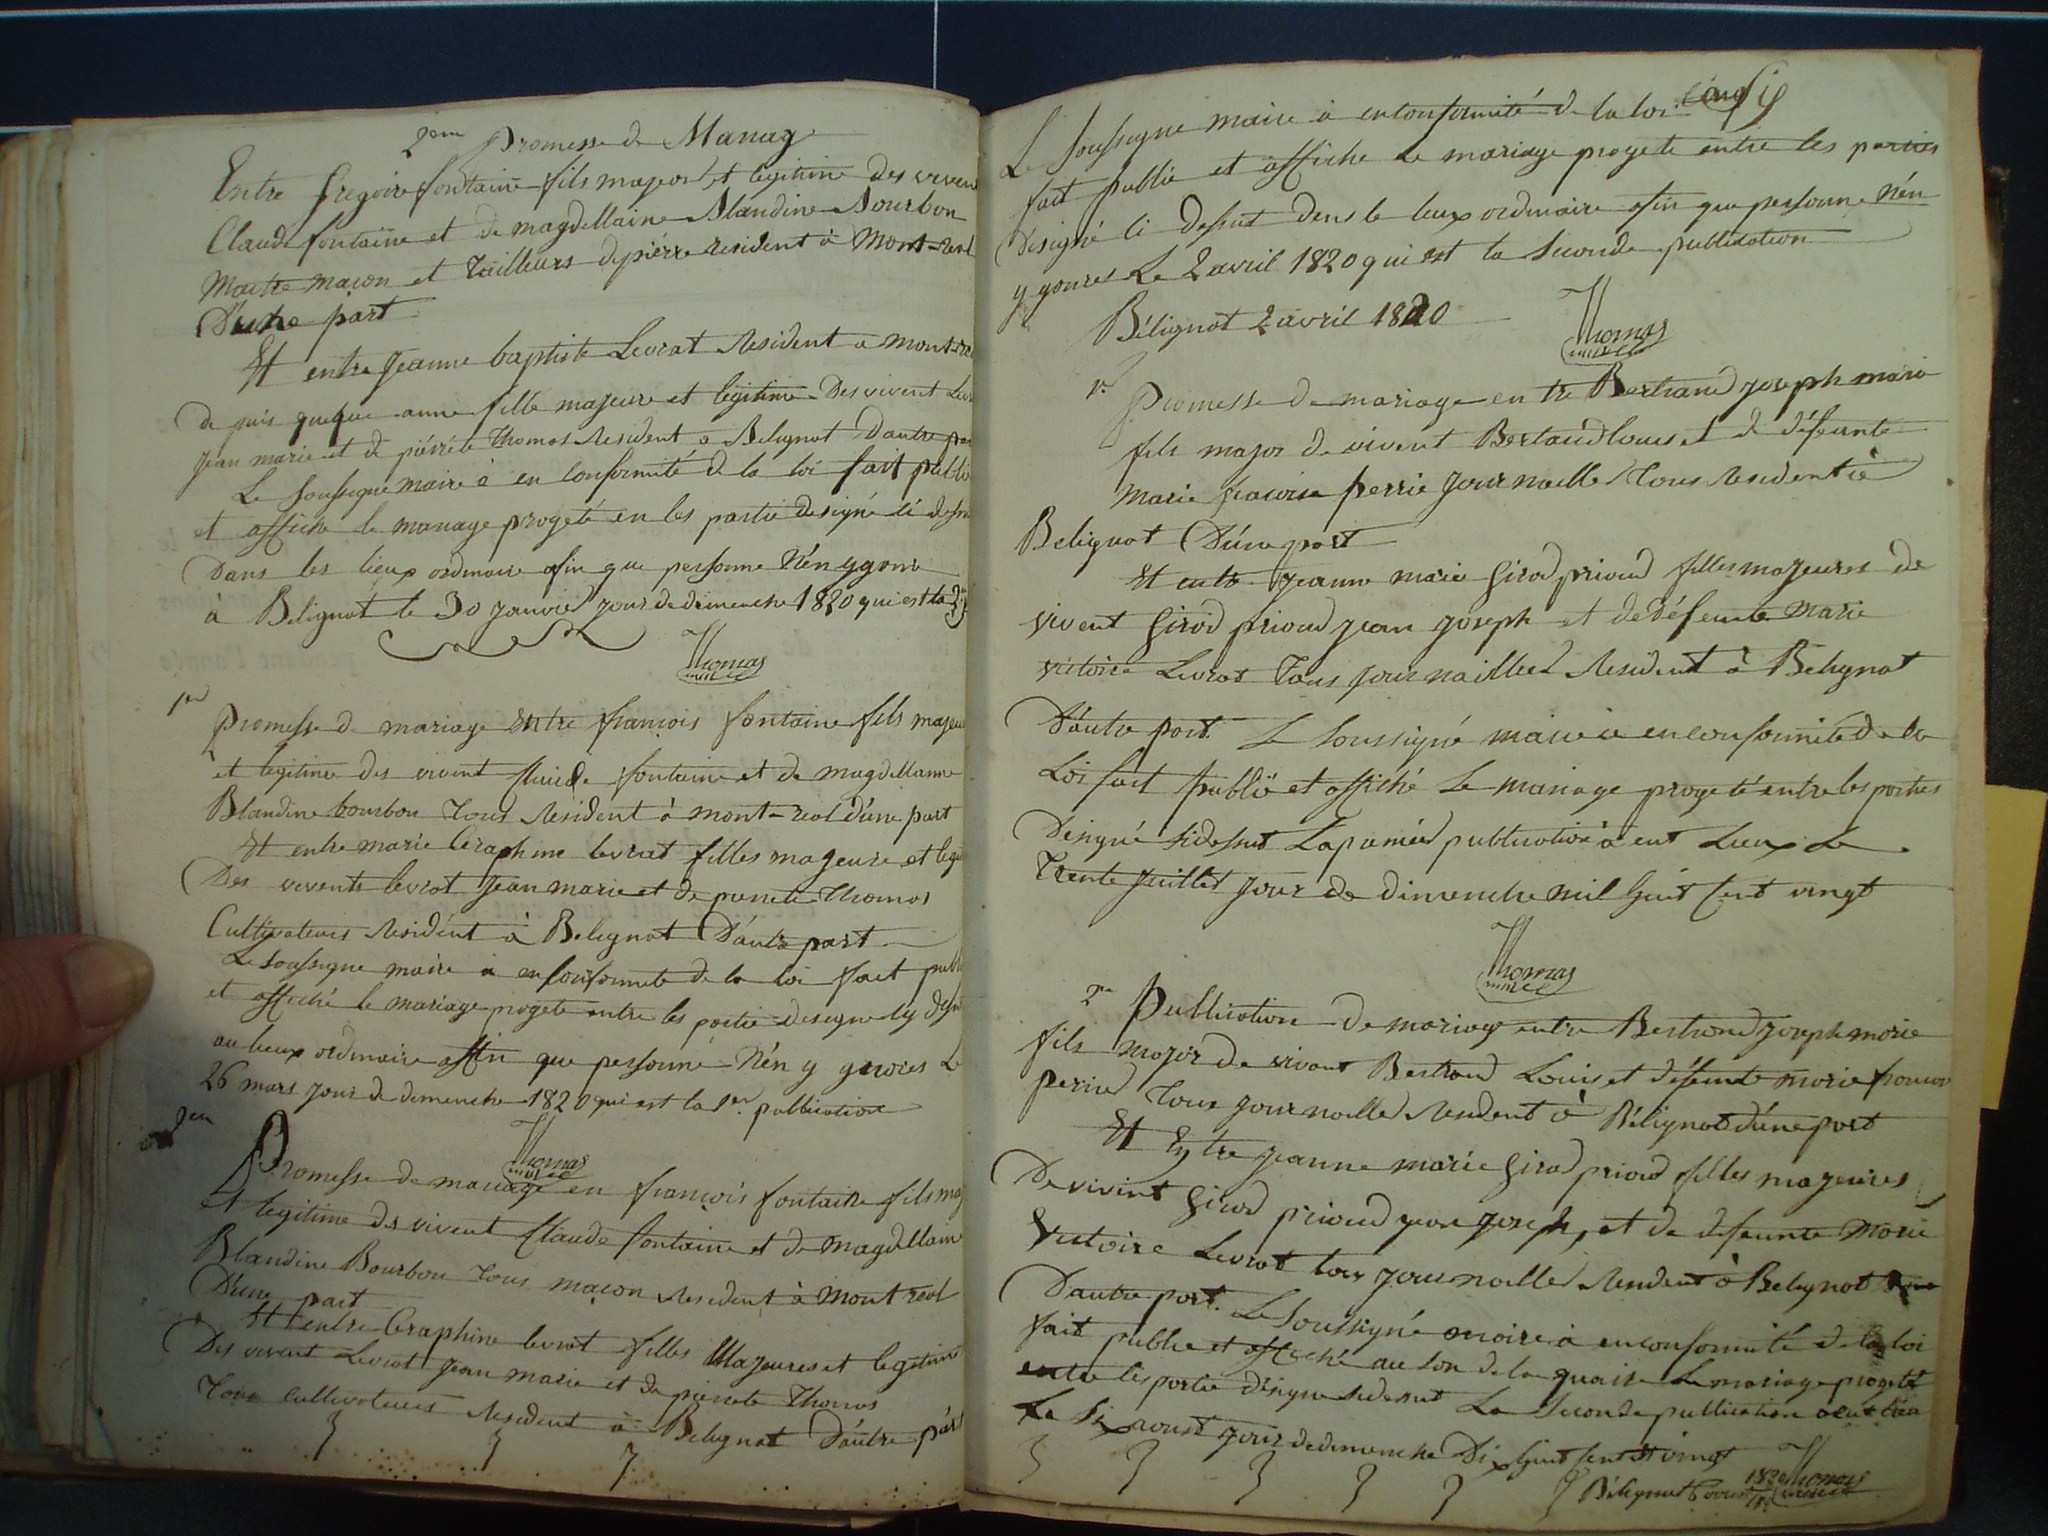 2em Promesse de Mariag
Entre gregoire fontaine fils major et legitime des vivent
Claude fontaine et de magdellaine Blandine Bourbon
Maitre macon et Tailleurs de pierre resident à Mont-real
D'une part
Et entre Jeanne baptiste Levrat Resident a mont-re
de puis quelque anne fille majeure et legitime Des vivent Levr
jean marie et de pierrete Thomas Resident a Belignat D'autre par
Le soussigné maire à en conformité de la loi fait publi
et affiche le mariage progeté en les partie designé ci dessu
Dans les lieux ordinaire afin que personne N'en ygnore
à Belignat le 30 janvier jour de dimenche 1820 qui est la 2e
Thomas
maire
1er
Promesse de mariage Entre francois fontaine fils majeu
et legitime des vivent Claude fontaine et de magdellaine
Blandine bourbon Tous Resident à mont-real d'une part
Et entre marie Ceraphine levrat filles mageure et legi
Des vivents levrat Jean marie et de pierrete Thomas
Cultivateurs Resident à Belegnat D'autre part
Le soussigne maire à en conformite de la loi fait publi
et affiché le mariage progeté entre les partie designe cy dess
au lieux ordinaire affin que personne N'en y gnores Le
26 mars jour de dimenche 1820 qui est la 1er publication
2em
Thomas
maire
Promesse de mariage en françois fontaine fils maj
et legitime des vivent Claude fontaine et de magdellaine
Blandine Bourbon Tous maçon Resident à Mont real
D'une part
Et entre Ceraphine levrat filles Majeures et legetime
Des vivent Levrat Jean marie et de pierrete Thomas
Tous cultivateurs Resident à Belegnat D'autre part
Le soussigne maire à en conformité de la loi
fait publié et affiche le mariage progete entre les parties
designé ci dessut dens le lieux ordinaire afin que personne N'en
y gnores Le 2 avril 1820 qui est la seconde publication
Bélignat 2 avril 1820
Thomas
maire
1re
Promesse de mariage entre Bertrand joseph marie
fils major de vivent Bertaud louis et de défeunte
Marie fracoise perrie Journaille Tous Resident à
Belignat D'une part
Et entr Jeanne marie Girod prioud filles majeures de
vivent Girod prioud jean joseph et de défeunte Marie
victoire Levrat Tous journaillee Resident à Belignat
D'autre part Le soussigné maire à en conformité de la
Loi fait publié et affiché Le mariage progeté entre les parties
Designé sidessut La premier publication à eut Lieux Le
Trente juillet jour de dimenche mil huit cent vingt
Thomas
maire
2me
Publication de mariage entre Bertrand joseph marie
fils major de vivant Bertrand Louis et défeunte marie francoi
perrie Tous journaille Resident à Bélignat d'une part
Et Entre jeanne marie Girod prioud filles majeures
De vivint Girod prioud jean joseph, et de defeunte Marie
Victoire Levrat tous journaille Resident à Belegnat
D'autre part. Le Soussigné maire à en conformité de la loi
fait publie et affiché au son de la quaisse Le mariage progeté
entre les partie désigne sidessut La Seconde publication a eut lieu
Le Six aoust jour de dimenche Dix huit cent et vingt
Bélignat 6 aoust 1820
Thomas
maire